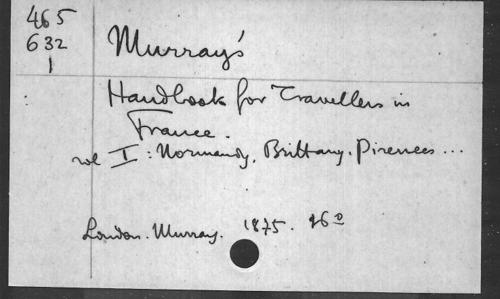 465
632
1
Murray's
Handbook for Travellers in
France.
vol I: Normandy, Brittany. Pirenees...
London. Murray. 1875. 16º